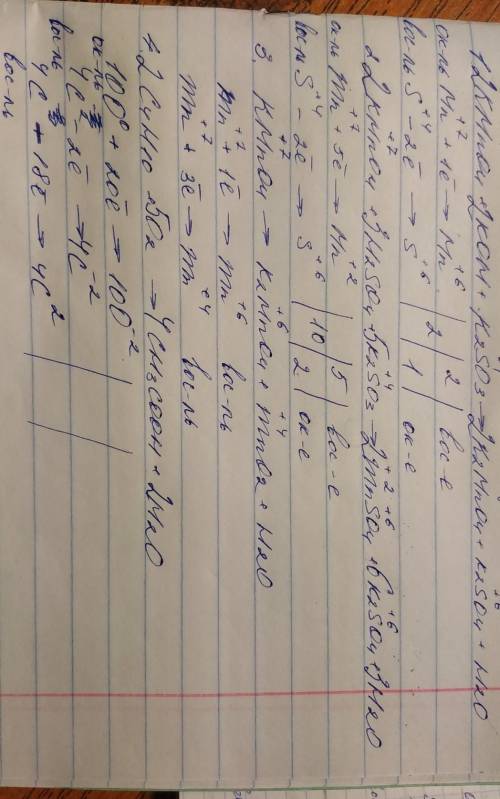 1. 2KMnO4 + 2KOH + K2SO3 → 2K2MnO4 + K2SO4 + H2O
+7 +6
ок-ль Mn + 1ē → Mn | 2 | 2 вос-е
+4 +6
вос-ль S - 2ē → S | 1 | ок-е
+7 +4 +2 +6 +6
2. 2KMnO4 + 3H2SO4 + 5K2SO3 → 2MnSO4 + 6K2SO4 + 3H2O
+7 +2
ок-ль Mn + 5ē → Mn | 10 | 5 | вос-е
+4 +6
вос-ль S - 2ē → S | 2 | ок-е
+7 +6 +4
3. KMnO4 → K2MnO4 + MnO2 + H2O
+7 +6
Mn + 1ē → Mn вос-ль
+7 +4
Mn + 3ē → Mn вос-ль
4. 2C4H10 + 5O2 → 4CH3COOH + 2H2O
10O⁰ + 20ē → 10O⁻²
ок-ль
4C - 2ē → 4C⁻²
вос-ль
4C + 18ē → 4C²
вос-ль